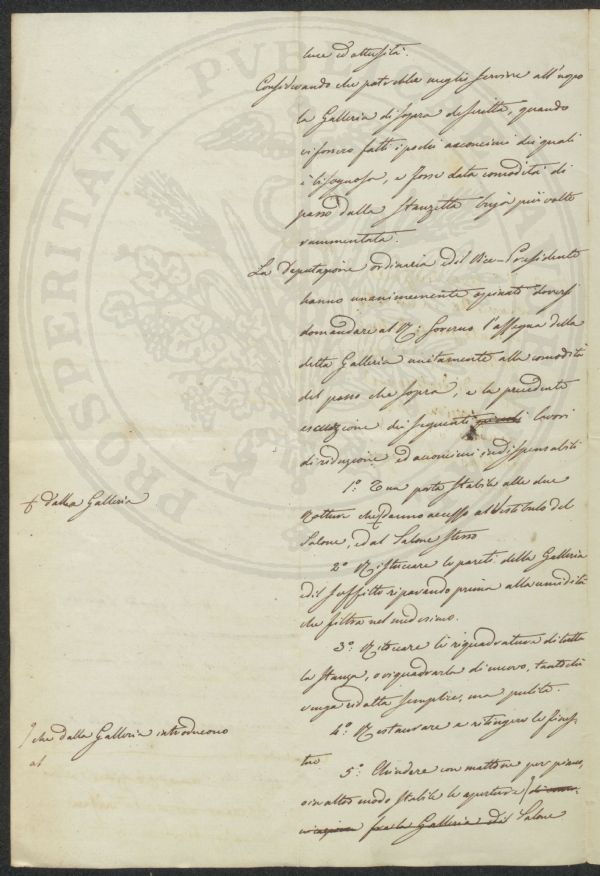 luce ed attività.
Considerando che potrebbe meglio servire all'uopo
la Galleria di sopra descritta, quando
vi fossero fatti i pochi acconcimi dei quali
è bisognosa, e fosse data comodità di
passo dalla Stanzetta bugia più volte
rammentata.
La Deputazione ordinaria ed il Vice-Presidente
hanno unanimemente opinato doversi
domandare al R: Governo l'assegna della
detta Galleria unitamente alla comodità
del passo che sopra, e la precedente
esecuzione dei seguenti piccoli lavori
di riduzione ed acconcimi indispensabili
1.º Una porta stabile alle due
+ dalla Galleria
Rotture che danno accesso al Vestibulo del
Salone, ed al Salone stesso
2º Ristuccare le pareti della Galleria
ed il soffitto riparando prima alla umidità
che filtra nel medesimo.
3º: Ritoccare la riquadratura di tutta
la Stanza, o riquadrarla di nuovo, tanto che
venga ridotta semplice, ma pulita.
4º: Restaurare e ritingere le fines-
tre
che dalla Galleria introducono
al
5º: Chiudere con mattone per piano,
o in altro modo stabile le aperture di comu-
nicazione fra la Galleria ed il Salone
PROSPERITATI PVBL